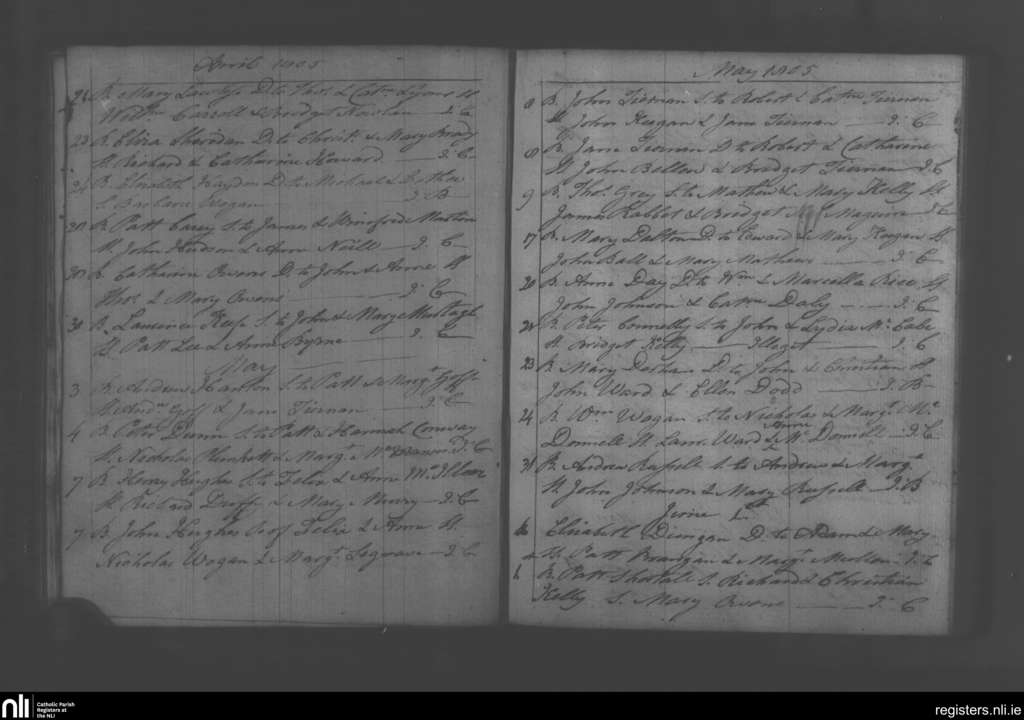 April 1805
B. Mary Lawless D. to Thos. & Cathn. Lyons S.
Willm. Carroll & Bridget Nowlan J: C
23 B. Eliza Sheridan D. to Christ. & Mary Brady
S. Richard & Catharine Howard J: C
B. Elizabeth Haydon D. to Michael &
S. Barbara Wogan J: B
30 B. Patt Carey S. to James & Winifride
S. John Hudson & Anne Neill J: C
30 B. Catharine Owens D. to John & Anne S.
Thos. & Mary Owens J: C
30 B. Laurence Keefe S. to John & Mary
S. Patt Lee & Anne Byrne J: C
May
3 B. Andrew Hanlon S. to Patt & Margt. Goff
S. Andw. Goff & Jane Tiernan J: C
4 B. Peter Dunn S. to Patt & Hannah Conway
S. Nicholas Plunkett & Margt. J: C
7 B. Henry Hughes S. to Felix & Anne
S. Richard & Mary J: C
7 B. John Hughes S. of Felix & Anne S.
Nicholas Wogan & Margt. Segrave J: C
May 1805
8 B. John Tiernan S. to Robert & Cathn. Tiernan
S. John Keegan & Jane Tiernan J: C
8 B. Jane Tiernan D. to Robert & Catharine
S. John Bellew & Bridget Tiernan J: C
9 B. Thos. Grey S. to Mathw. & Mary Kelly S.
James Rabbet & Bridget Maguire J: C
17 B. Mary Dalton D. to Edward & Mary Keegan S.
John Ball & Mary Mathews J: C
20 B. Anne Day D. to Wm. & Marcella Rice S.
John Johnson & Cathn. Daly J: C
B. Peter Connolly S. to John & Lydia Mc. Cabe
S. Bridget Kelly Illegt J: C
23 B. Mary D. to John & Christian S.
John Ward & Ellen Dodd J: B
24 B. Wm. Wogan S. to Nicholas & Margt. Mc.
Donnell S. Laur. Ward & Anne Mc. Donnell J: C
31 B. Andrew Russell S. to Andrew & Margt.
S. John Johnson & Mary Russell J: B
June 1st
Elizabeth D. to Adam & Mary
S. Patt Brangan & Margt. J: C
B. Patt Shortall S. Richard & Christian
Kelly S. Mary Owens J: C
nli
Catholic Parish
Registers at
the NLI
registers.nli.ie